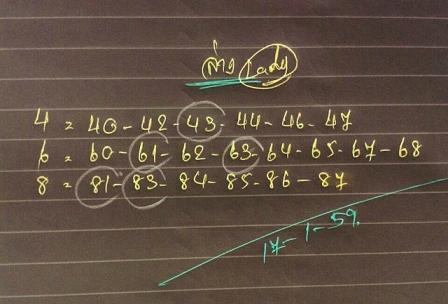 ล่าง Lady
4 = 40-42-43-44-46-47
6 = 60-61-62-63-64-65-67-68
8 = 81-83-84-85-86-87
17-1-59.